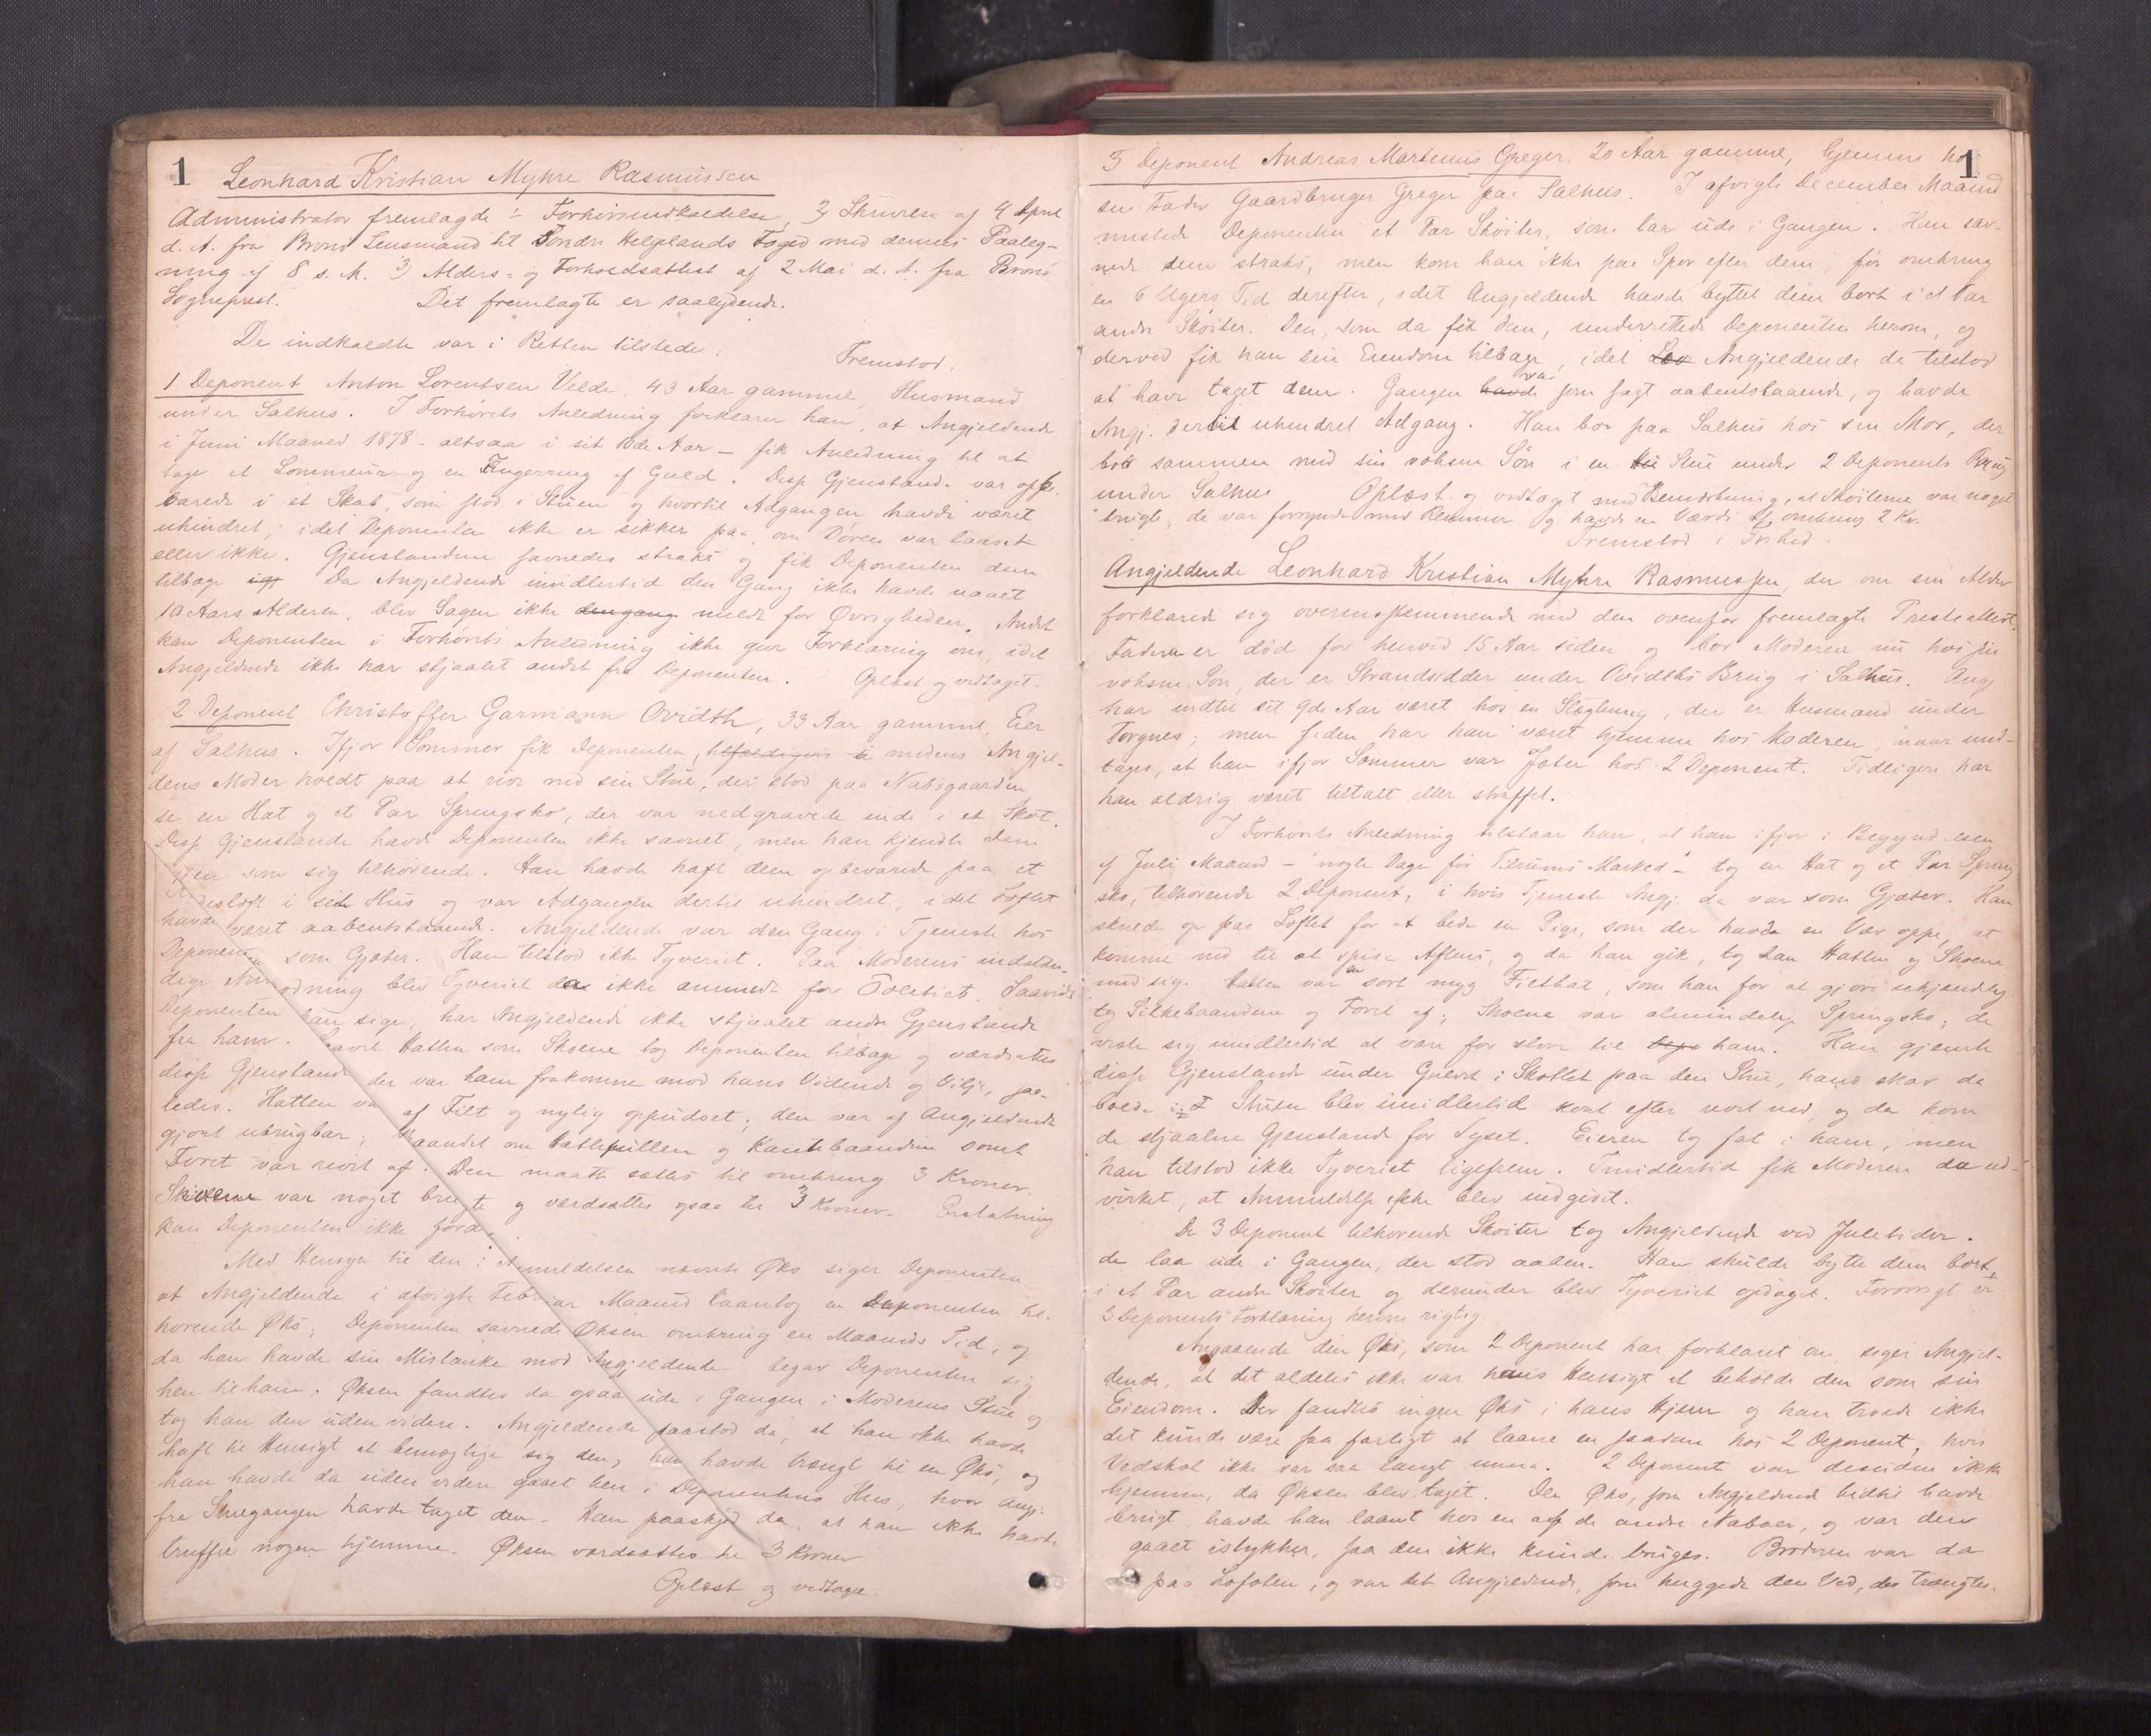 1
Leonhard Kristian Myhre Rasmussen
Administrator fremlagde 1) Forhørsindkaldelse, 2) Skrivelse af 4 April
d. A. fra Brønø Lensmand til Søndre Helgelands Foged med dennes Paateg-
ning af 8 s. M. 3) Alders- og Forholdsattest af 2 Mai d. A. fra Brønø
Sogneprest. Det fremlagte er saalydende.
De indkaldte var i Retten tilstede.
Fremstod.
1 Deponent Anton Lorentsen Velde, 43 Aar gammel, Husmand
under Salhus. I Forhørets Anledning forklarer han, at Angjeldende
i Juni Maaned 1878 - altsaa i sit 10de Aar - fik Anledning til at
tage et Lommeur og en Fingerring af Guld. Disse Gjenstande var opbe-
varede i et Skab, som stod i Stuen og hvortil Adgangen havde været
uhindret, idet Deponenten ikke er sikker paa, om Døren var laaset
eller ikke. Gjenstandene savnedes straks og fik Deponenten dem
tilbage Da Angjeldende imidlertid den Gang ikke havde naaet
10 Aars Alderen, blev Sagen ikke dengang meldt for Øvrigheden. Andet
kan Deponenten i Forhørets Anledning ikke give Forklaring om, idet
Angjeldende ikke har stjaalet andet fra Deponenten. Oplæst og vedtaget.
2 Deponent Christoffer Garmann Ovidth, 33 Aar gammel, Eier
af Salhus. Ifjor Sommer fik Deponenten, medens Angjel-
dens Moder holdt paa at rive ned sin Stue, der stod paa Nabogaarden
se en Hat og et Par Springsko, der var nedgravede inde i et Skot.
Disse Gjenstande havde Deponenten ikke savnet, men han kjendte dem
igjen som sig tilhørende. Han havde havt dem opbevarede paa et
i sit Hus og var Adgangen dertil uhindret, idet Loftet
havde været aabentstaaende. Angjeldende var den Gang i Tjeneste hos
Deponenten som Gjæter. Han tilstod ikke Tyveriet. Paa Moderens indstæn-
dige Anmodning blev Tyveriet da ikke anmeldt for Politiet. Saavidt
Deponenten kan sige, har Angjeldende ikke stjaalet andre Gjenstande
fra ham. Saavel Hatten som Skoene tog Deponenten tilbage og værdsattes
disse Gjenstande der var ham frakomne mod hans Vidende og Vilje, saa-
ledes. Hatten var af Filt og nylig oppudset; den var af Angjeldende
gjort ubrugbar; Baandet om Hattepullen og Kantebaandene samt
Foret var revet af. Den maatte sættes til omkring 3 Kroner.
Skoene var noget brugte og værdsattes ogsaa til 3 Kroner. Erstatning
kan Deponenten ikke fordre.
Med Hensyn til den i Anmeldelsen nævnte Øks siger Deponenten
at Angjeldende i afvigte Februar Maaned laantog en Deponenten til-
hørende Øks; Deponenten savnede Øksen omkring en Maaneds Tid, og
da han havde sin Mistanke mod Angjeldende begav Deponenten sig
hen til ham. Øksen fandtes da ogsaa ude i Gangen i Moderens Stue og
tog han den uden videre. Angjeldende paastod da, at han ikke havde
havt til Hensigt at bemægtige sig den, han havde trængt til en Øks, og
han havde da uden videre gaaet hen i Deponentens Hus, hvor Angj.
fra Stuegangen havde taget den. Han paaskjød da, at han ikke havde
truffet nogen hjemme. Øksen værdsattes til 3 Kroner
Oplæst og vedtaget.
1
3 Deponent Andreas Martenius Greger, 20 Aar gammel, hjemme hos
sin Fader Gaardbruger Greger paa Salhus. I afvigte December Maaned
mistede Deponenten et Par Skøiter, som laa ude i Gangen. Han sav-
nede dem straks, men kom han ikke paa Spor efter dem, før omkring
en 6 Ugers Tid derefter, idet Angjeldende havde byttet dem bort i et Par
andre Skøiter. Den, som da fik dem, underrettede Deponenten herom, og
derved fik han sin Eiendom tilbage, idet Angjeldende da tilstod
at have taget dem. Gangen havde var som sagt aabentstaaende, og havde
Angj. dertil uhindret Adgang. Han bor paa Salhus hos sin Mor, der
bor sammen med sin voksne Søn i en Stue under 2 Deponents Brug
under Salhus Oplæst og vedtaget med Bemærkning, at Skøiterne var noget
brugte, de var forsynede med Remmer og havde en Værdi af omkring 2 Kr.
Fremstod i Frihed.
Angjeldende Leonhard Kristian Myhre Rasmussen, der om sin Alder
forklarede sig overensstemmende med den ovenfor fremlagte Presteattest.
Faderen er død for henved 15 Aar siden og bor Moderen nu hos sin
voksne Søn, der er Strandsidder under Ovidths Brug i Salhus. Angj.
har indtil sit 9de Aar været hos en Slægtning, der er Husmand under
Torgnes; men siden har han været hjemme hos Moderen, naar und-
tages, at han ifjor Sommer var Jæter hos 2 Deponent. Tidligere har
han aldrig været tiltalt eller straffet.
I Forhørets Anledning tilstaar han, at han ifjor i Begyndelsen
af Juli Maaned - "nogle Dage før Tilrums Marked" - tog en Hat og et Par Spring-
sko, tilhørende 2 Deponent, i hvis Tjeneste Angj. da var som Gjæter. Han
skulde op paa Loftet for at bede en Pige, som der havde en Væv oppe, at
komme ned til at spise Aftens, og da han gik, tog han Hatten og Skoene
med sig. Hatten var en sort myg Filthat, som han for at gjøre ukjendelig
tog Silkebaandene og Foret af; Skoene var almindelig Springsko; de
viste sig imidlertid at være for store til ham. Han gjemte
disse Gjenstande under Gulvet i Skottet paa den Stue, hans Mor da
boede i. Stuen blev imidlertid kort efter revet ned, og da kom
de stjaalne Gjenstande for Lyset. Eieren tog fat i ham, men
han tilstod ikke Tyveriet ligefrem. Imidlertid fik Moderen da ud-
virket, at Anmeldelse ikke blev indgivet.
De 3 Deponent tilhørende Skøiter tog Angjeldende ved Juletider.
de laa ude i Gangen, der stod aaben. Han skulde bytte dem bort
i et Par andre Skøiter og derunder blev Tyveriet opdaget. Forøvrigt er
3 Deponents Forklaring herom rigtig.
Angaaende den Øks, som 2 Deponent har forklaret om, siger Angjel-
dende, at det aldeles ikke var hans Hensigt at beholde den som sin
Eiendom. Der fandtes ingen Øks i hans Hjem og han troede ikke
det kunde være saa farligt at laane en saadan hos 2 Deponent, hvis
Vedskot ikke var saa langt unna. 2 Deponent var desuden ikke
hjemme, da Øksen blev taget. Den Øks, som Angjeldende hidtil havde
brugt, havde han laant hos en af de andre Naboer, og var den
gaaet istykker, saa den ikke kunde bruges. Broderen var da
paa Lofoten, og var det Angjeldende, som huggede den Ved, der trængtes.